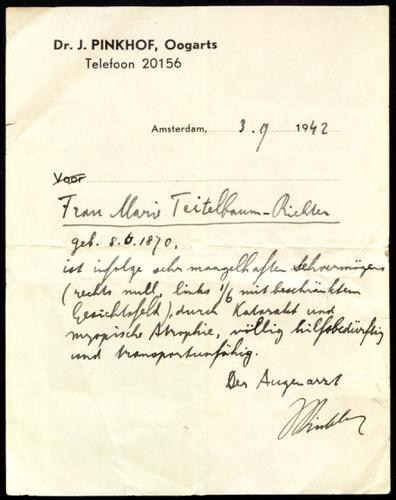 Dr. J. PINKHOF, Oogarts
Telefoon 20156
Amsterdam, 3. 9 1942
Voor
Frau Marie Teitelbaum-Richter
geb. 8.6.1870,
ist infolge sehr mangelhaften Sehvermögens
(rechts null, links 1/6 mit beschränktem
Gesichtsfeld), durch Katarakt und
myopische Atrophie, völlig hilfsbedürftig
und transportunfähig.
Der Augenarzt
JPinkhof